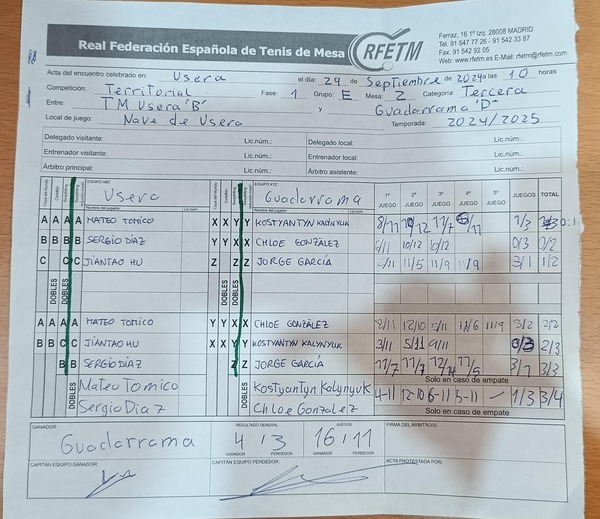 Real Federación Española de Tenis de Mesa
RFETM
Ferraz, 16 1º Izq. 28008 MADRID
Tel. 91 547 77 26 - 91 542 33 87
Fax. 91 542 92 05
Web: www.rfetm.es E-Mail: rfetm@rfetm.com
Acta del encuentro celebrado en: Usera el día: 29 de Septiembre de 2024 a las 10 horas
Competición: Territorial Fase: 1 Grupo: E Mesa: 2 Categoría: Tercera
Entre: TM Usera 'B' y Guadarrama 'D'
Local de juego: Nave de Usera Temporada: 2024/2025
Delegado visitante: Lic.núm.: Delegado local: Lic.núm.:
Entrenador visitante: Lic.núm.: Entrenador local: Lic.núm.:
Árbitro principal: Lic.núm.: Árbitro asistente: Lic.núm.:
EQUIPO ABC Usera EQUIPO XYZ Guadarrama 1º JUEGO 2º JUEGO 3º JUEGO 4º JUEGO 5º JUEGO JUEGOS TOTAL
A A A A MATEO TOMICO X X Y Y KOSTYANTYN KALYNYUK 8/11 11/7 1/3 0:1
B B B B SERGIO DÍAZ Y Y X X CHLOE GONZÁLEZ 10/12 10/12 0/3 0/2
C C C JIANTAO HU Z Z Z JORGE GARCÍA 11/5 11/9 11/9 3/1 1/2
DOBLES DOBLES DOBLES DOBLES
A A A A MATEO TOMICO Y Y X X CHLOE GONZÁLEZ 8/11 12/10 5/11 11/6 11/9 3/2 2/2
B B C C JIANTAO HU X X Y Y KOSTYANTYN KALYNYUK 3/11 5/11 9/11 0/3 2/3
B B SERGIO DÍAZ Z Z JORGE GARCÍA 11/7 11/7 12/14 11/5 3/1 3/3
Solo en caso de empate
DOBLES Mateo Tomico Kostyantyn Kalynyuk 4-11 12-10 6-11 5-11 - 1/3 3/4
Sergio Diaz Chloe Gonzalez
Solo en caso de empate
GANADOR: RESULTADO GENERAL JUEGOS FIRMA DEL ÁRBITRO/S:
Guadarrama 4 / 3 16 / 11
GANADOR PERDEDOR GANADOR PERDEDOR
CAPITÁN EQUIPO GANADOR: CAPITÁN EQUIPO PERDEDOR: ACTA PROTESTADA POR: